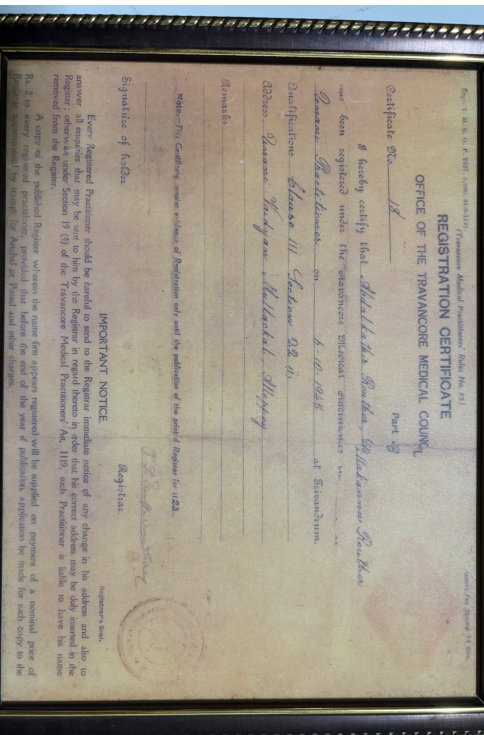 (Travancore Medical Practitioners' Rules No. 25)
REGISTRATION CERTIFICATE
OFFICE OF THE TRAVANCORE MEDICAL COUNCIL
Certificate No. 18 Part B
I hereby certify that Abdulkhader Rowther Pillakannu Rowther
has been registered under the Travancore Medical Practitioners
Unani Practitioner on 6.10.1945 at Trivandrum.
Qualifications Clause iii Section 22
Address Unani Vaidyan Mullackal Alleppey
Remarks
Note:—This Certificate remains evidence of Registration only until the publication of the printed Register for 1123.
Signature of holder
Registrar.
Registrar's Seal.
IMPORTANT NOTICE.
Every Registered Practitioner should be careful to send to the Registrar immediate notice of any change in his address and also to
answer all enquiries that may be sent to him by the Registrar in regard thereto in order that his correct address may be duly inserted in the
Register; otherwise under Section 19 (6) of the Travancore Medical Practitioners' Act, 1119, such Practitioner is liable to have his name
removed from the Register.
A copy of the published Register wherein the name first appears registered will be supplied on payment of a nominal price of
Rs. 2 to every registered practitioner, provided that before the end of the year of publication, application be made for such copy to the
Registrar by stamps for Anchal or Postal and other charges.